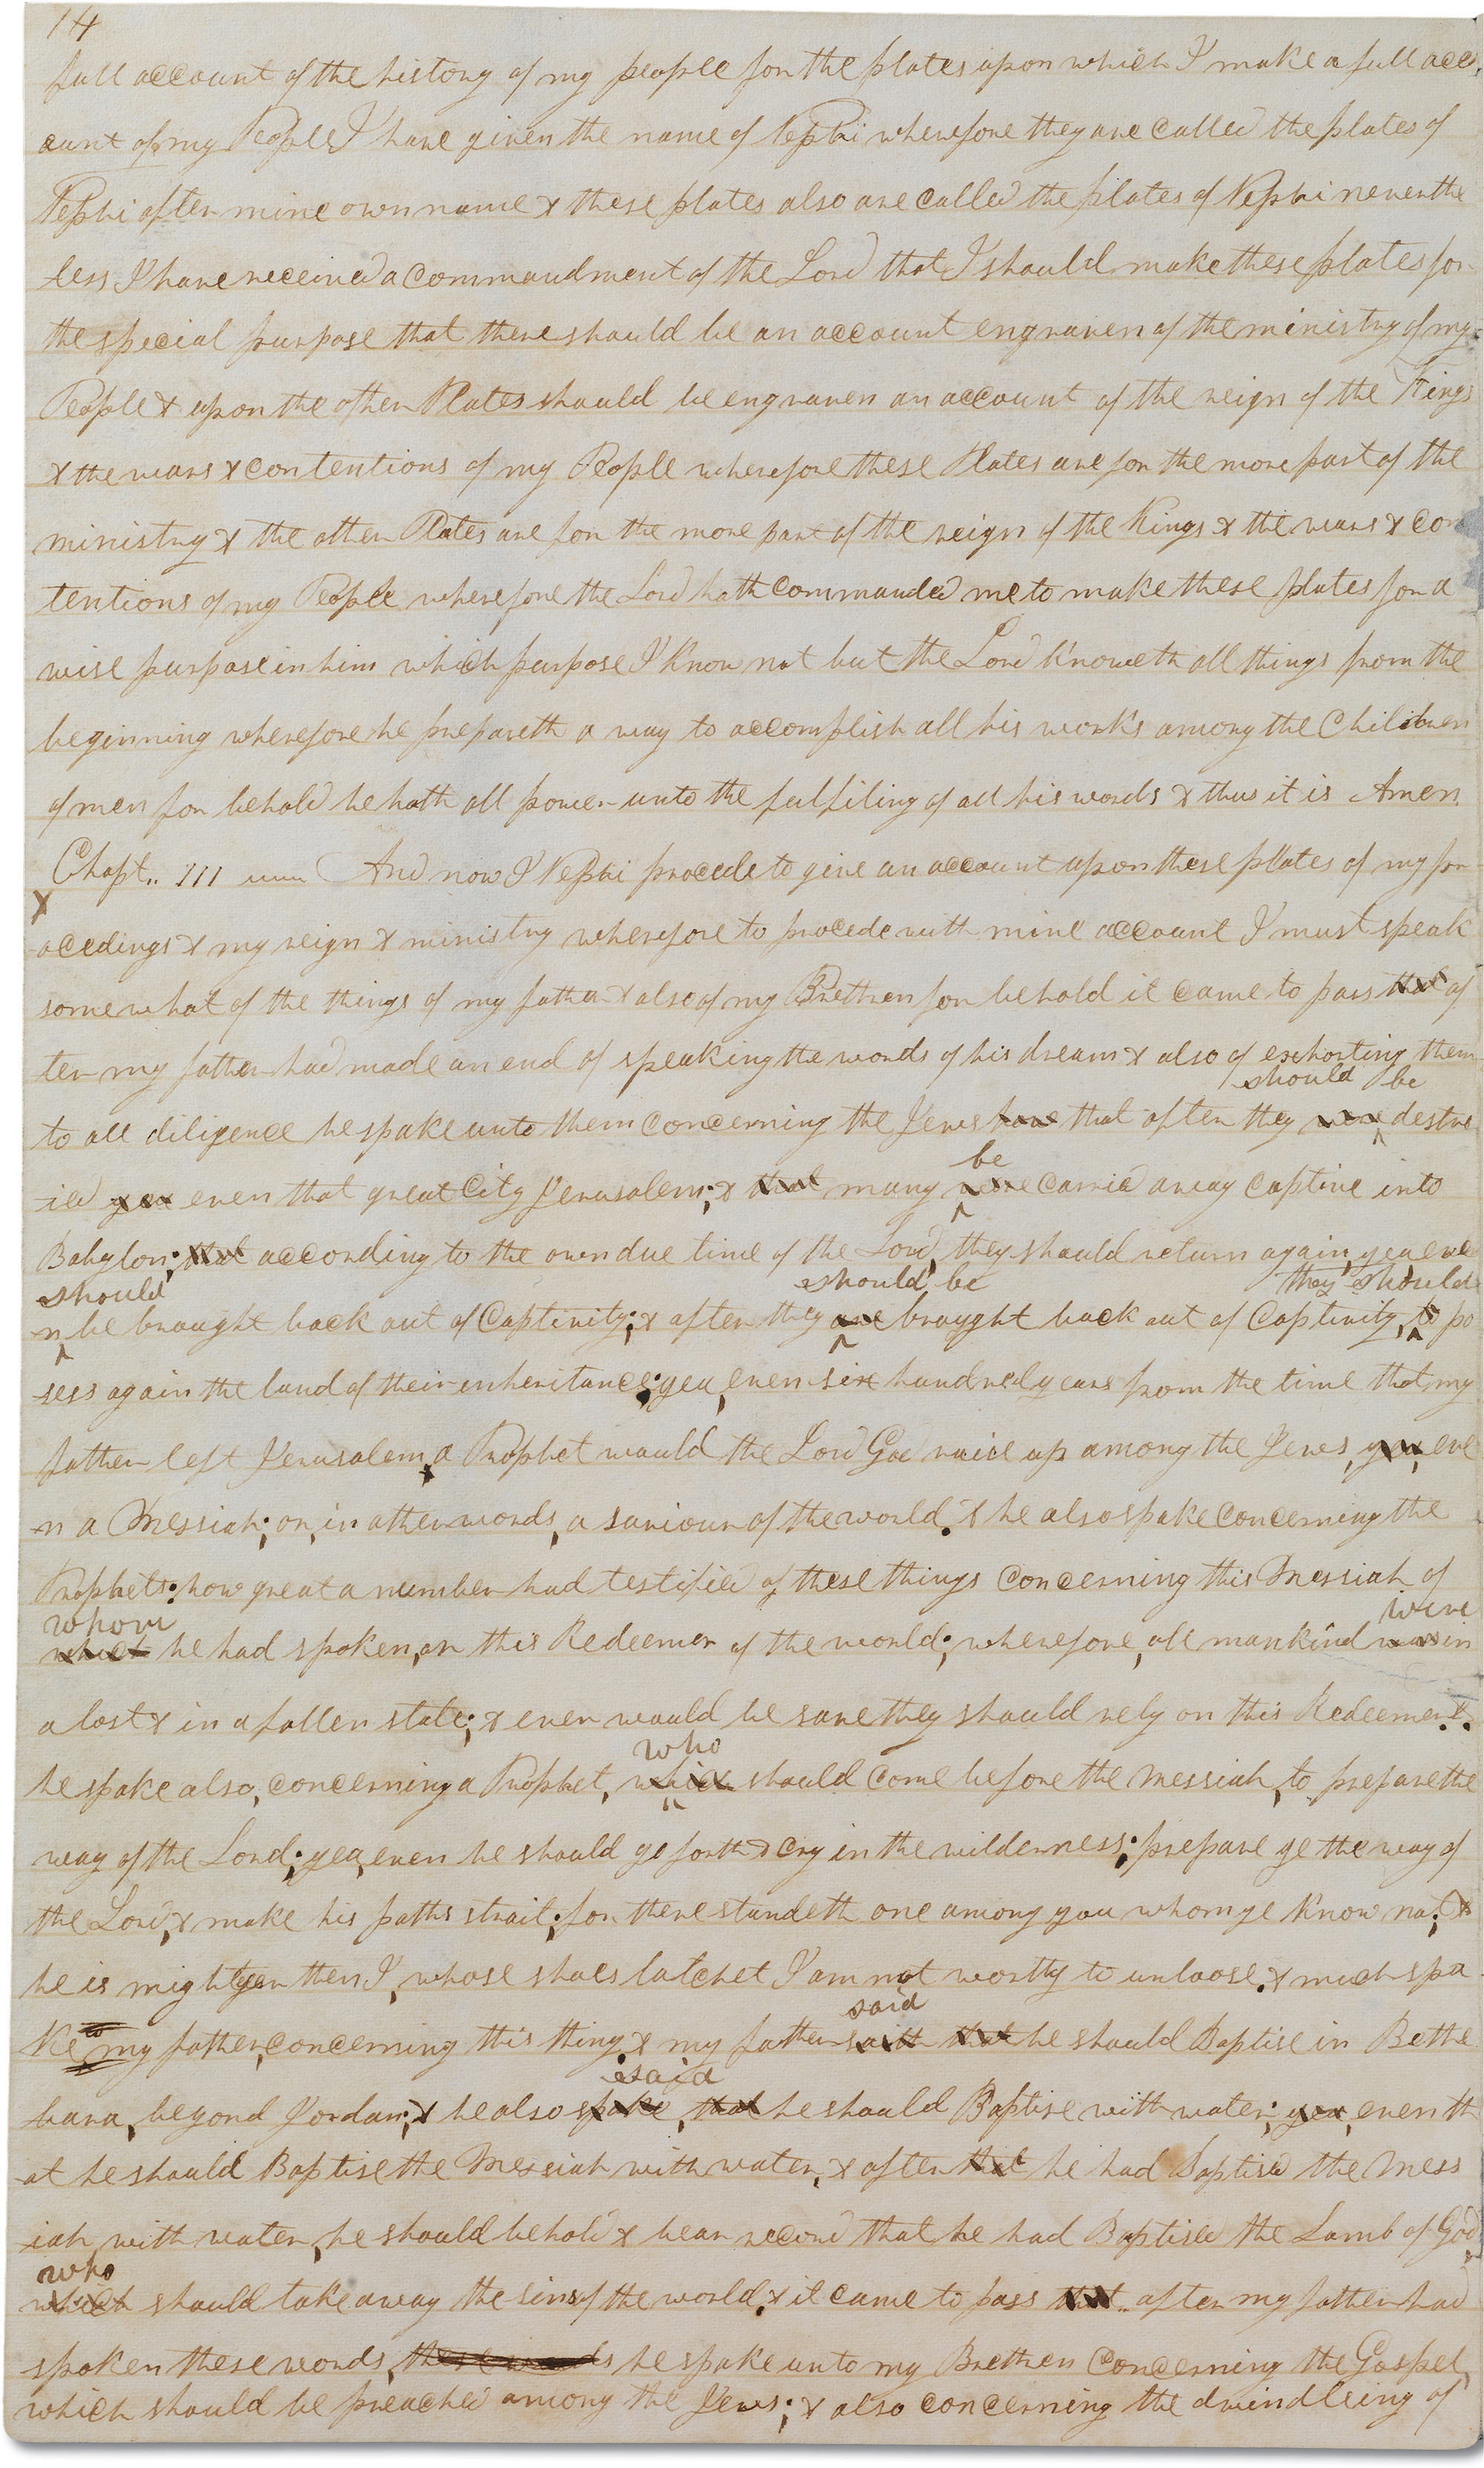 14
full account of the history of my people for the plates upon which I make a full acc
ount of my People I have given the name of Nephi wherefore they are called the plates of
Nephi after mine own name & these plates also are called the plates of Nephi neverthe
less I have received a commandment of the Lord that I should make these plates for
the special purpose that there should be an account engraven of the ministry of my
People & upon the other Plates should be engraven an account of the reign of the Kings
& the wars & contentions of my People wherefore these Plates are for the more part of the
ministry & the other Plates are for the more part of the reign of the Kings & the wars & con
tentions of my People wherefore the Lord hath commanded me to make these plates for a
wise purpose in him which purpose I know not but the Lord knoweth all things from the
beginning wherefore he prepareth a way to accomplish all his works among the Children
of men for behold he hath all power unto the fulfiling of all his words & thus it is Amen
Chapt.. III And now I Nephi procede to give an account upon these plates of my pr
X
ocedings & my reign & ministry wherefore to procede with mine account I must speak
somewhat of the things of my father & also of my Brethren for behold it came to pass that af
ter my father had made an end of speaking the words of his dream & also of exhorting them
should be
to all diligence he spake unto them concerning the Jews how that after they were destro
be
ied yea even that great City Jerusalem; & that many were carried away captive into
Babylon; that according to the own due time of the Lord, they should return again, yea eve
should should be they should
n be brought back out of Captivity; & after they are brought back out of Captivity, to po
sess again the land of their inheritance; yea, even six hundred years from the time that my
father left Jerusalem, a Prophet would the Lord God raise up among the Jews, yea, eve
n a Messiah; or, in other words, a saviour of the world. & he also spake concerning the
Prophets: how great a number had testified of these things concerning this Messiah of
whom were
which he had spoken, or this Redeemer of the world; wherefore, all mankind was in
a lost & in a fallen state; & ever would be save they should rely on this Redeemer. &
who
he spake also, concerning a Prophet, which should come before the Messiah, to prepare the
way of the Lord; yea, even he should go forth & cry in the wilderness; prepare ye the way of
the Lord, & make his paths strait; for there standeth one among you whom ye know not; &
he is mightyer then I, whose shoes latchet I am not worthy to unloose. & much spa
said
ke my father, concerning this thing. & my father saith that he should Baptise in Betha
said
bara, beyond Jordan; & he also spake, that he should Baptise with water; yea, even th
at he should Baptise the Messiah with water, & after that he had Baptised the Mess
iah with water, he should behold & bear record that he had Baptised the Lamb of God,
who
which should take away the sins of the world. & it came to pass that after my father had
spoken these words, these words he spake unto my Brethren concerning the Gospel,
which should be preached among the Jews; & also concerning the dwindleing of